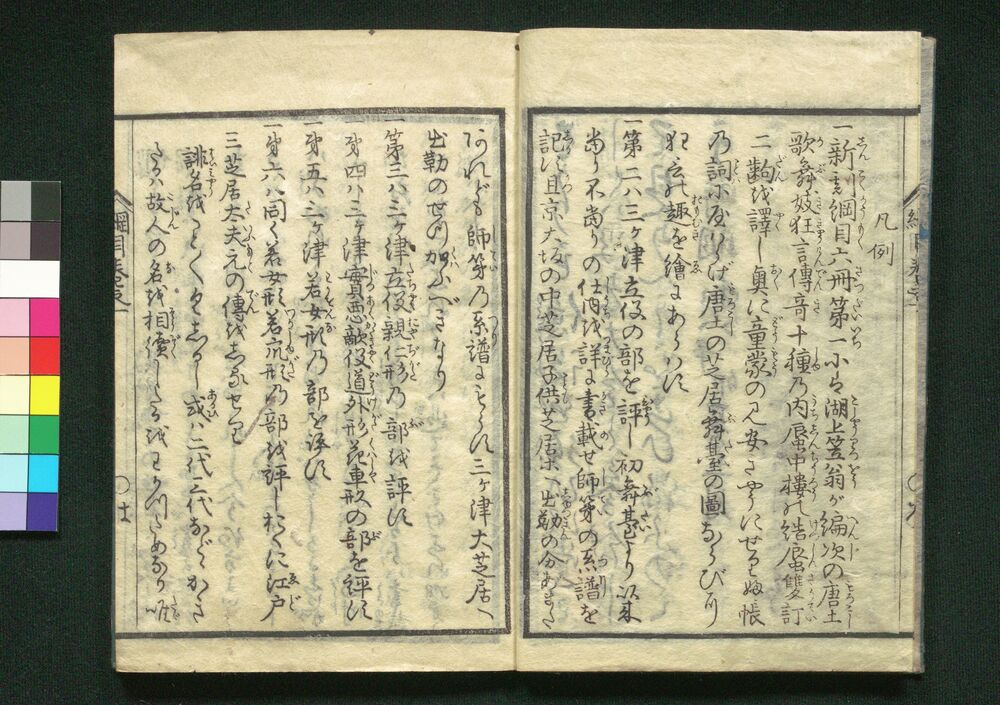 凡例
一新刻綱目六冊第一小ハ湖上笠翁が編次の唐土
歌舞妓狂言傳奇十種乃内蜃中樓の結蜃雙訂
二齣を譯し奥に童蒙の見安きやうにせりふ帳
乃詞小直しかば唐土の芝居舞臺の圖ならびに
狂言の趣を繪にあらハす
一第二ハ三ヶ津立役の部を評し初舞臺より以来
當り不當りの仕内を詳に書載せ師第の系譜を
記す且京大坂の中芝居子供芝居ホへ出勤の分あまた
あれども師第乃系譜にもらす三ヶ津大芝居へ
出勤のせつ加ふべきなり
一第三ハ三ヶ津立役親仁形乃部を評す
一第四ハ三ヶ津實悪敵役道外形花車形の部を評す
一第五ハ三ヶ津若女形乃部を評す
一第六ハ同く若女形若衆形乃部を評し打に江戸
三芝居太夫元の傳をしるせり
誹名をことごとくしるし或ハ二代三代ながかき
たるハ故人の名を相續したるをわかつためなり唯
綱目巻之一